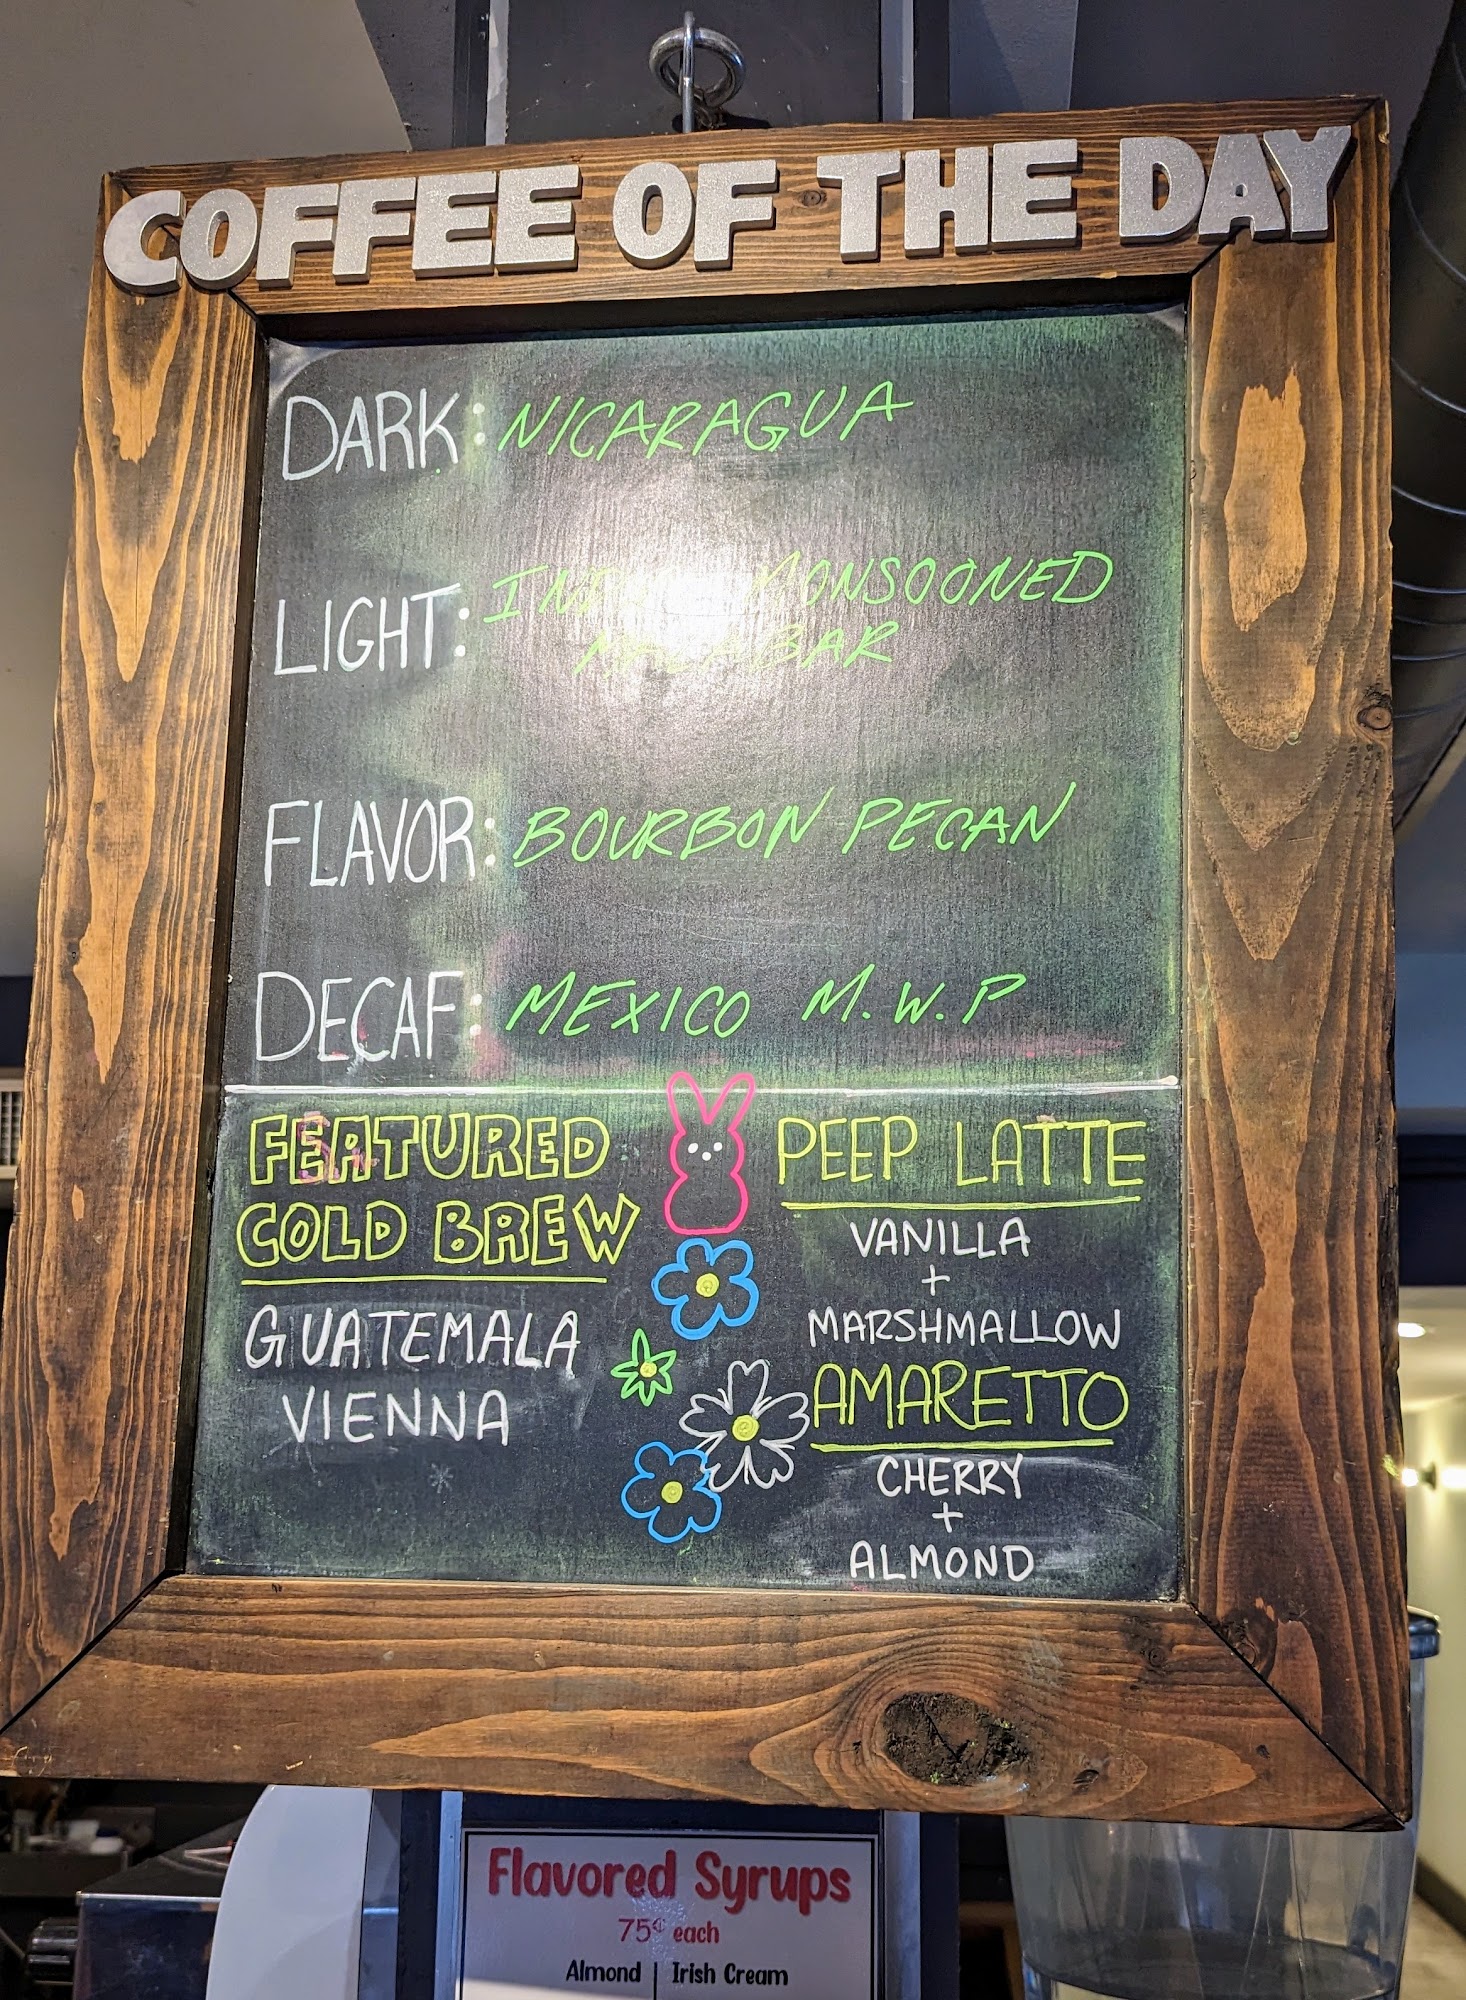 COFFEE OF THE DAY
DARK: NICARAGUA
LIGHT: INDIA MONSOONED
MALABAR
FLAVOR: BOURBON PECAN
DECAF: MEXICO M.W.P
FEATURED
COLD BREW
GUATEMALA
VIENNA
PEEP LATTE
VANILLA
+
MARSHMALLOW
AMARETTO
CHERRY
+
ALMOND
Flavored Syrups
75¢ each
Almond | Irish Cream